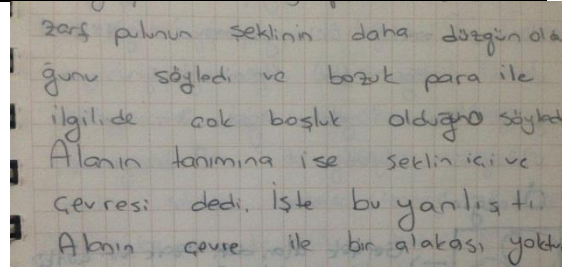 zarf pulunun şeklinin daha düzgün ola
ğunu söyledi ve bozuk para ile
ilgilide çok boşluk olduğno söyled
Alanın tanımına ise şeklin içi ve
çevresi dedi. İşte bu yanlıştı.
Alanın çevre ile bir alakası yoktu